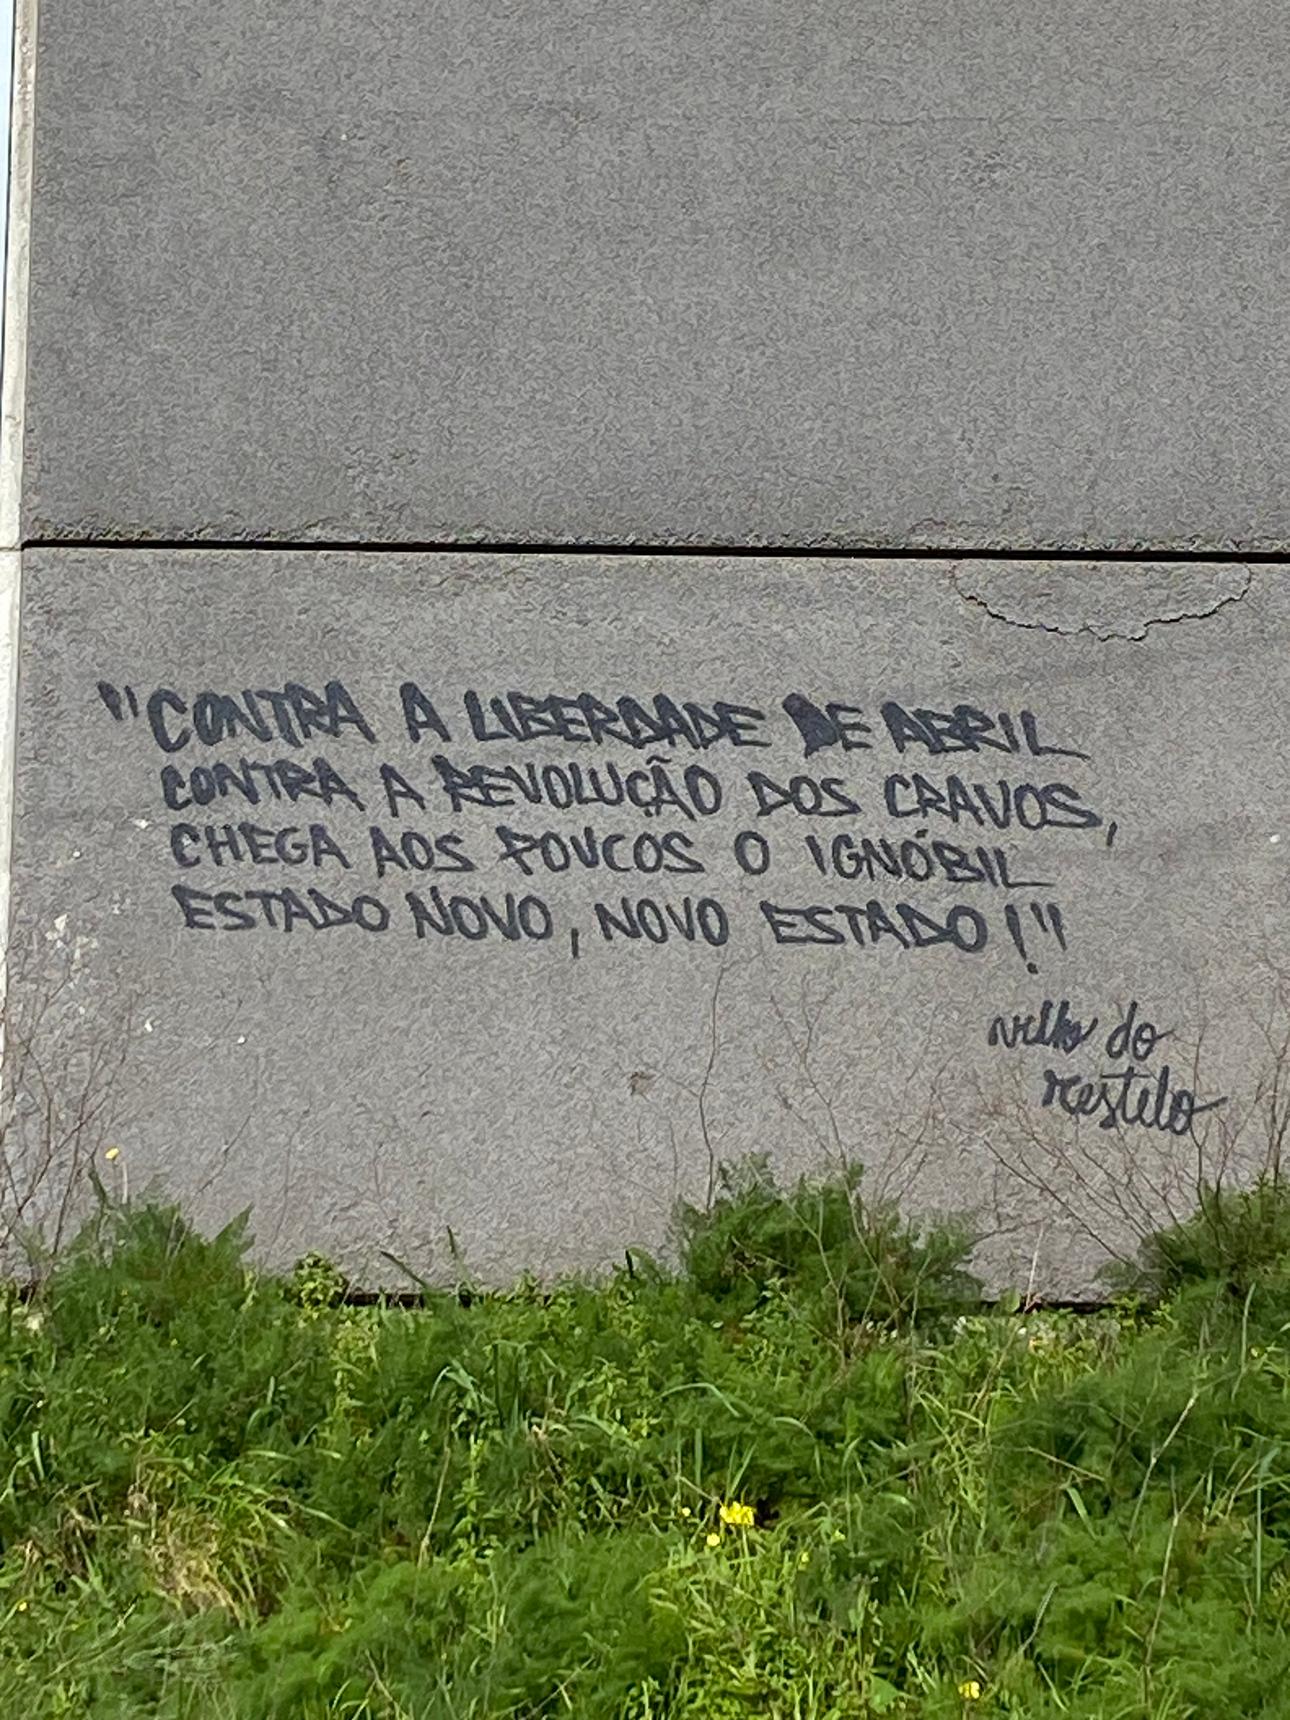 "CONTRA A LIBERDADE DE ABRIL
CONTRA A REVOLUÇÃO DOS CRAVOS,
CHEGA AOS POUCOS O IGNÓBIL
ESTADO NOVO, NOVO ESTADO!"
velho do
restelo